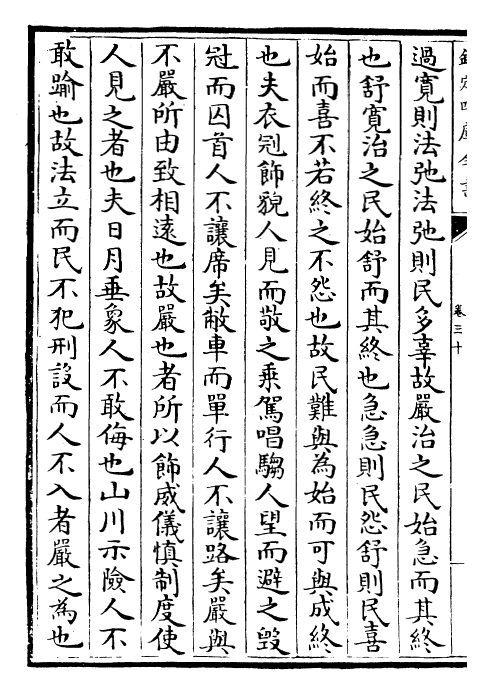 欽定四庫全書
卷三十
過寛則法弛法弛則民多辜故嚴治之民始急而其終
也舒寛治之民始舒而其終也急急則民怨舒則民喜
始而喜不若終之不怨也故民難與為始而可與成終
也夫衣冠飾貌人見而敬之乗駕唱騶人望而避之毁
冠而囚首人不讓席矣敝車而單行人不讓路矣嚴與
不嚴所由致相逺也故嚴也者所以飾威儀慎制度使
人見之者也夫日月垂象人不敢侮也山川示險人不
敢踰也故法立而民不犯刑設而人不入者嚴之為也